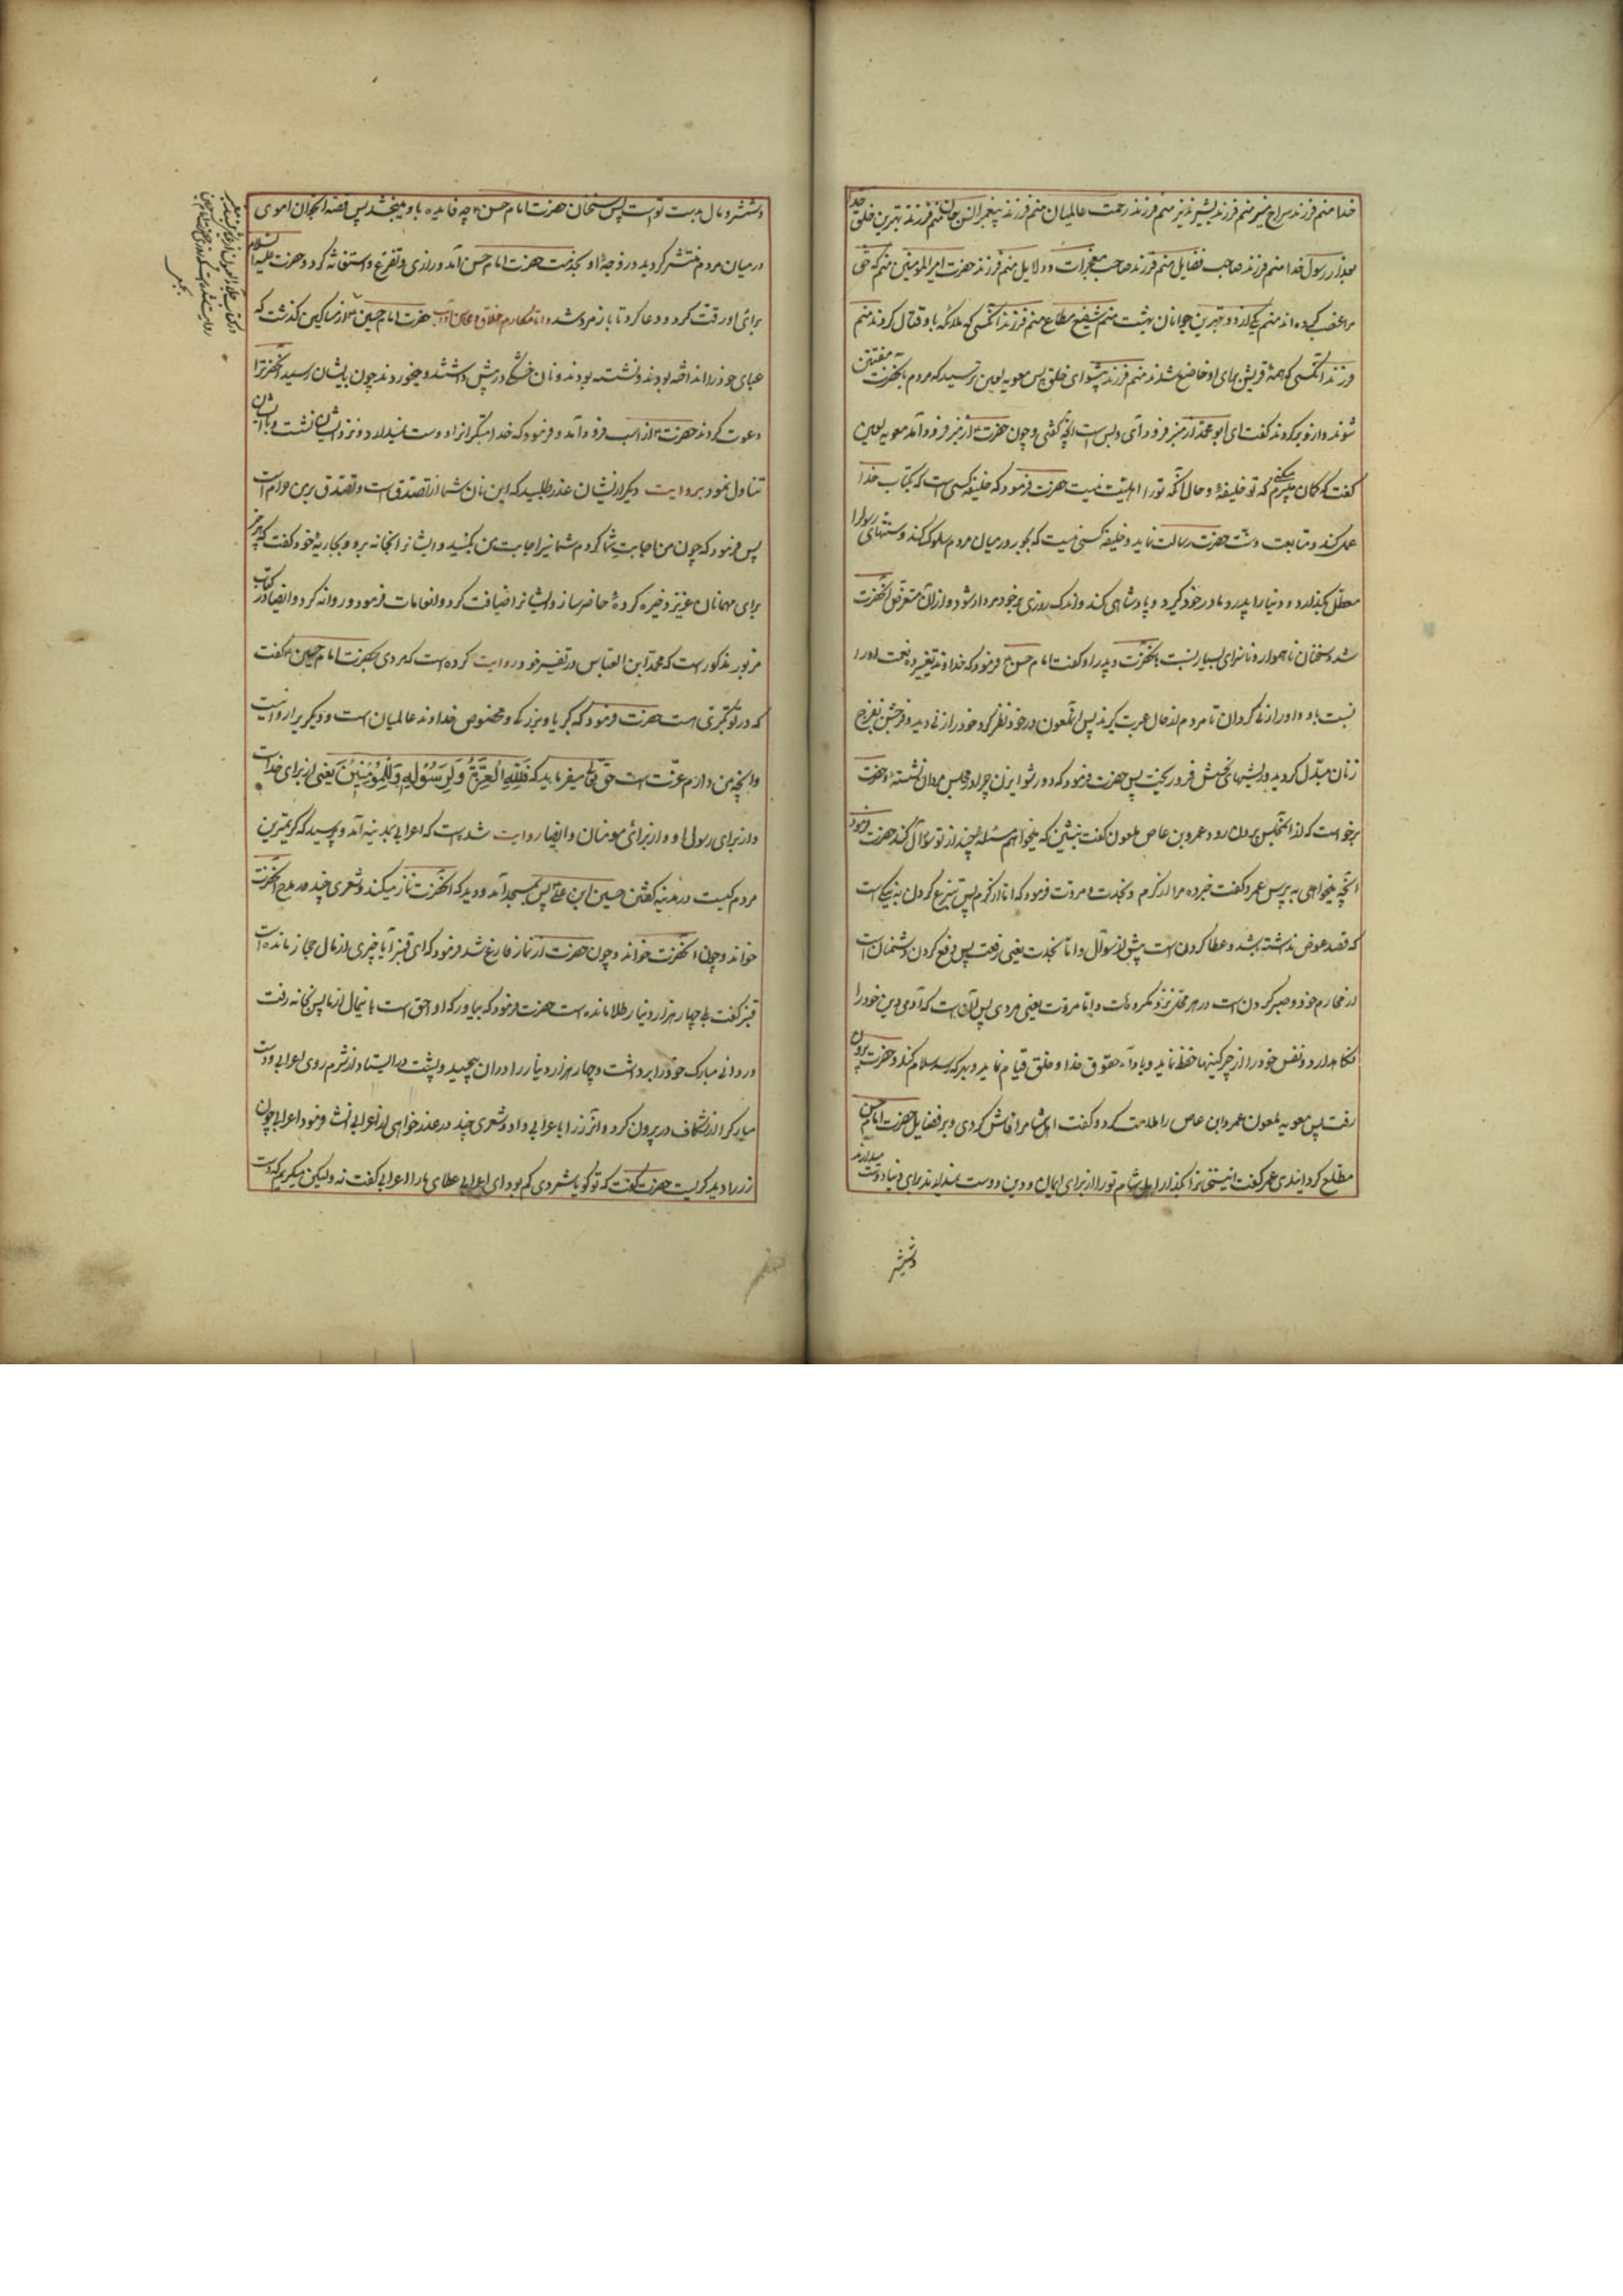 خدا منم فرزند سراج منیر منم فرزند بشیر نذیر منم فرزند رحمت عالمیان منم فرزند پیغمبر انس و جان منم فرزند بهترین خلق خدا
بعد از رسول خدا منم فرزند صاحب فضایل منم فرزند صاحب معجزات و دلایل منم فرزند حضرت امیرالمومنین منم که حق
مرا غصب کرده‌اند منم یکی از دو بهترین جوانان بهشت منم شفیع مطاع منم فرزند آنکسی که ملائکه با او قتال کردند منم
فرزند آنکسی که همهٔ قریش برای او خاضع شدند منم فرزند پیشوای خلق پس معویه لعین ترسید که مردم بانحضرت مفتتن
شوند و از او برکردند گفت ای ابو محمد از منبر فرود آی و بس است آنچه گفتی و چون حضرت از منبر فرود آمد معویه لعین
گفت که گمان میکنی که تو خلیفهٔ و حال آنکه تو را اهلیت نیست حضرت فرمود که خلیفه کسی است که بکتاب خدا
عمل کند و متابعت سنت حضرت رسالت نماید و خلیفه کسی نیست که بجور در میان مردم سلوک کند و سنتهای رسول را
معطل بگذارد و دنیا را پدر و مادر خود گیرد و پادشاهی کند و اندک روزی برخوردار شود و از آن متعرض آنحضرت
شد و سخنان ناهموار و ناسزای بسیار نسبت بانحضرت و پدر او گفت امام حسن فرمود که خداوندا تغییر ده نعمت او را
نسبت باو و او را زنی گردان تا مردم از حال عبرت گیرند پس آنملعون در خود نظر کرد خود را زنی دید و فرجش بفرج
زنان مبدل گردید و ریشهای نحسش فرو ریخت پس حضرت فرمود که دور شو ای زن چرا در مجلس مردان نشستهٔ و حضرت
برخواست که از آنمجلس بیرون رود عمرو بن عاص ملعون گفت بنشین که میخواهم مسئلهٔ چند از تو سؤال کنم حضرت فرمود
آنچه میخواهی به پرس عمرو گفت خبر ده مرا از کرم و نجدت و مروت فرمود که اما کرم پس تبرع کردن به نیکی است
که قصد عوض نداشته باشد و عطا کردن است پیش از سؤال و اما نجدت یعنی رفعت پس دفع کردن دشمنان است
از محارم خود و صبر کردن است در هر محل نزد مکروهات و اما مروت یعنی مردی پس آن است که آدمی دین خود را
نگاهدارد و نفس خود را از چرکینها حفظ نماید و باداء حقوق خدا و خلق قیام نماید و بهر که رسد سلام کند و حضرت بیرون
رفت پس معویه ملعون عمرو ابن عاص را ملامت کرد و گفت اهل شام را فاش کردی و بر فضایل حضرت امام حسن
مطلع گردانیدی عمر گفت این سخنان را بگذار اهل شام تو را از برای ایمان و دین دوست نمیدارند برای دنیا دوست میدارند
و شمشیر
و شمشیر و مال بدست توست پس سخنان حضرت امام حسن چه فایده باو میبخشد پس قصهٔ آنجوان اموی
در میان مردم منتشر گردید و زوجهٔ او بخدمت حضرت امام حسن آمد و زاری و تضرع و استغاثه کرد و حضرت علیه السلام
برای او رقت کرد و دعا کرد تا باز مرد شد و اما مکارم اخلاق و محاسن آداب حضرت امام حسین از مساکین گذشت که
عبای خود را انداخته بودند و نشسته بودند و نان خشکی در پیش داشتند و میخوردند چون بایشان رسید آنحضرترا
دعوت کردند حضرت از اسب فرود آمد و فرمود که خدا متکبرانرا دوست نمیدارد و نزد ایشان نشست و با ایشان
تناول نمود بروایت دیگر از ایشان عذر طلبید که این نان شما از تصدق است و تصدق بر من حرام است
پس فرمود که چون من اجابت شما کردم شما نیز اجابت من بکنید و ایشانرا بخانه برد و بجاریهٔ خود گفت که هر چیز
برای مهمانان عزیز ذخیره کردهٔ حاضر ساز و ایشانرا ضیافت کرد و انعامات فرمود و روانه کرد و ایضا در کتاب
مزبور مذکور است که محمد ابن العباس در تفسیر خود روایت کرده است که مردی بحضرت امام حسین گفت
که در تو تکبری است حضرت فرمود که کبریا و بزرگی مخصوص خداوند عالمیان است و دیگریرا روا نیست
و آنچه من دارم عزت است حق تعالی میفرماید که فَلِلّهِ الْعِزَّةُ وَلِرَسُولِهِ وَلِلْمُؤمِنِینَ یعنی از برای خداست
و از برای رسول او و از برای مومنان و ایضا روایت شده است که اعرابی بمدینه آمد و پرسید که کریمترین
مردم کیست در مدینه گفتند حسین ابن علی پس بمسجد آمد و دید که آنحضرت نماز میکند و شعری چند در مدح آنحضرت
خواند و چون آنحضرت خواند و چون حضرت از نماز فارغ شد فرمود که ای قنبر آیا چیزی از مال حجاز مانده است
قنبر گفت بلی چهار هزار دینار طلا مانده است حضرت فرمود که بیاور که او احق است باین مال از ما پس بخانه رفت
و ردای مبارک خود را برداشت و چهار هزار دینار را در آن پیچید و پشت در ایستاد و از شرم روی اعرابی دست
مبارک را از شکاف در بیرون کرد و آن زر را باعرابی داد و شعری چند در عذرخواهی از اعرابی انشا فرمود اعرابی چون
زر را دید گریست حضرت گفت که تو گویا شمردی کم بود ای اعرابی عطای ما را اعرابی گفت نه ولیکن میگریم که دست